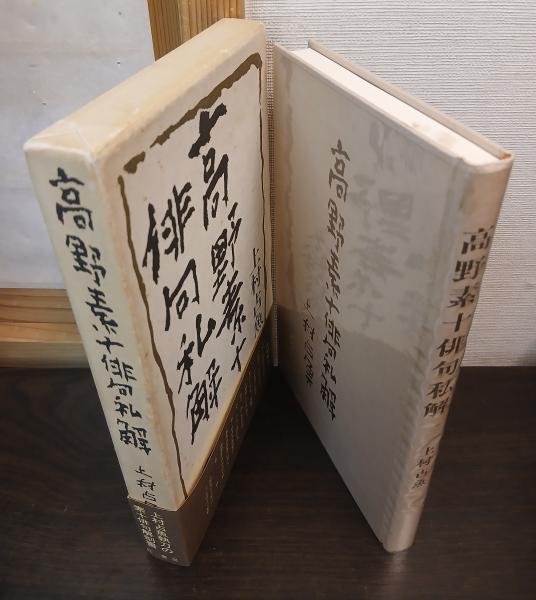 高野素十俳句私解
上村占
上村占魚執刀の
高野素十
俳句私解
上村占魚
高野素十俳句私解
上村占魚
高野素十俳句私解
上村占魚